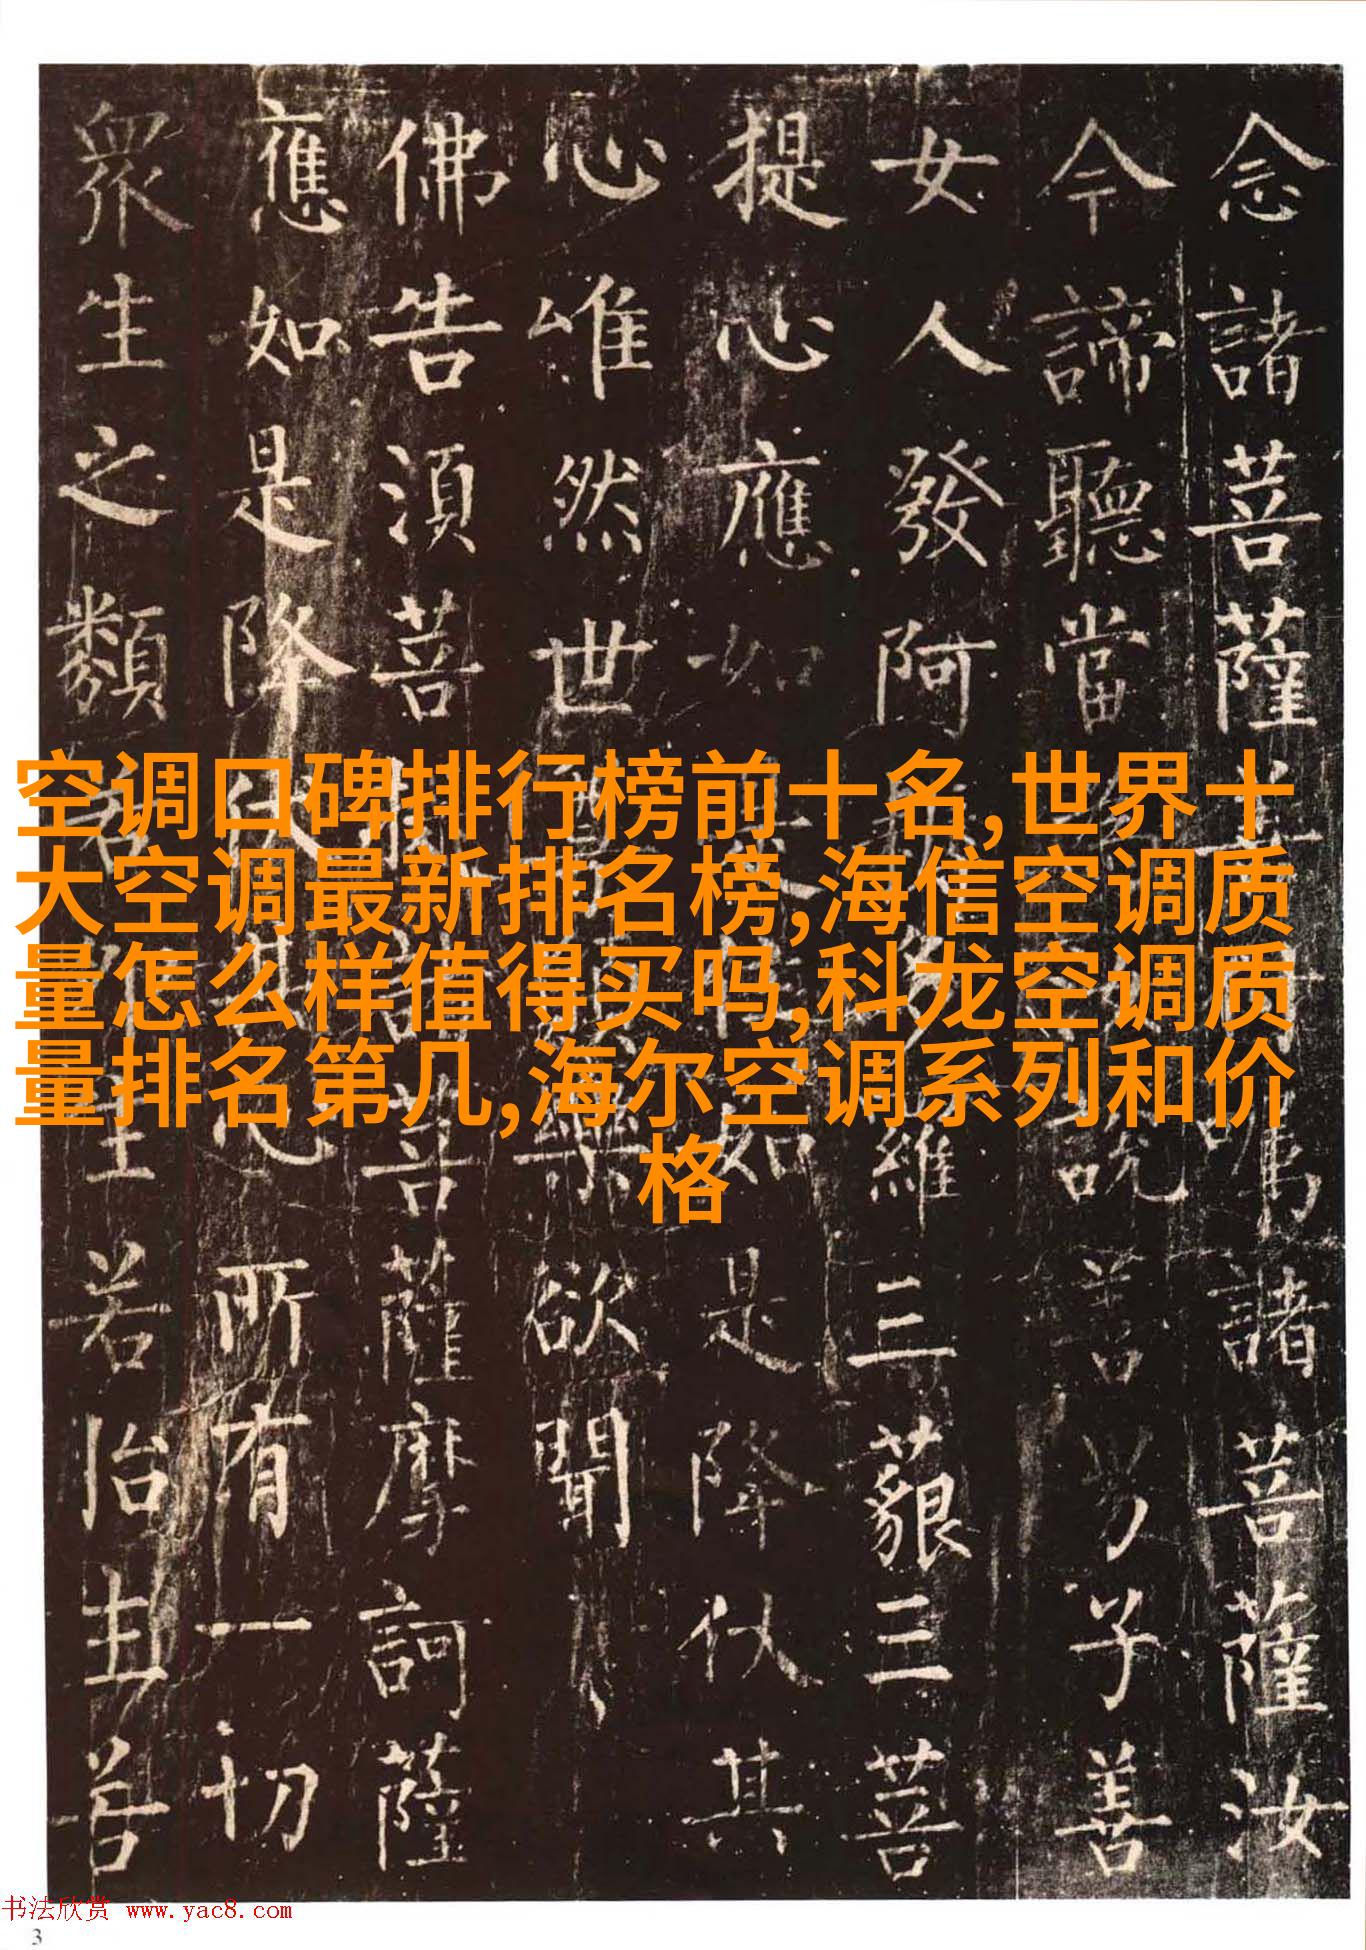 念諸菩薩善囑諸菩薩汝
今諦聽當說善男子善
女人發阿羅三藐三菩
提心應如如是降伏其
心唯然世樂欲聞
佛告須菩諸菩薩摩訶薩
應如是降伏其心所有一切
眾生之類若生若胎生若
空调口碑排行榜前十名,世界十
大空调最新排名榜,海信空调质
量怎么样值得买吗,科龙空调质
量排名第几,海尔空调系列和价
格
书法欣赏 www.yac8.com
3